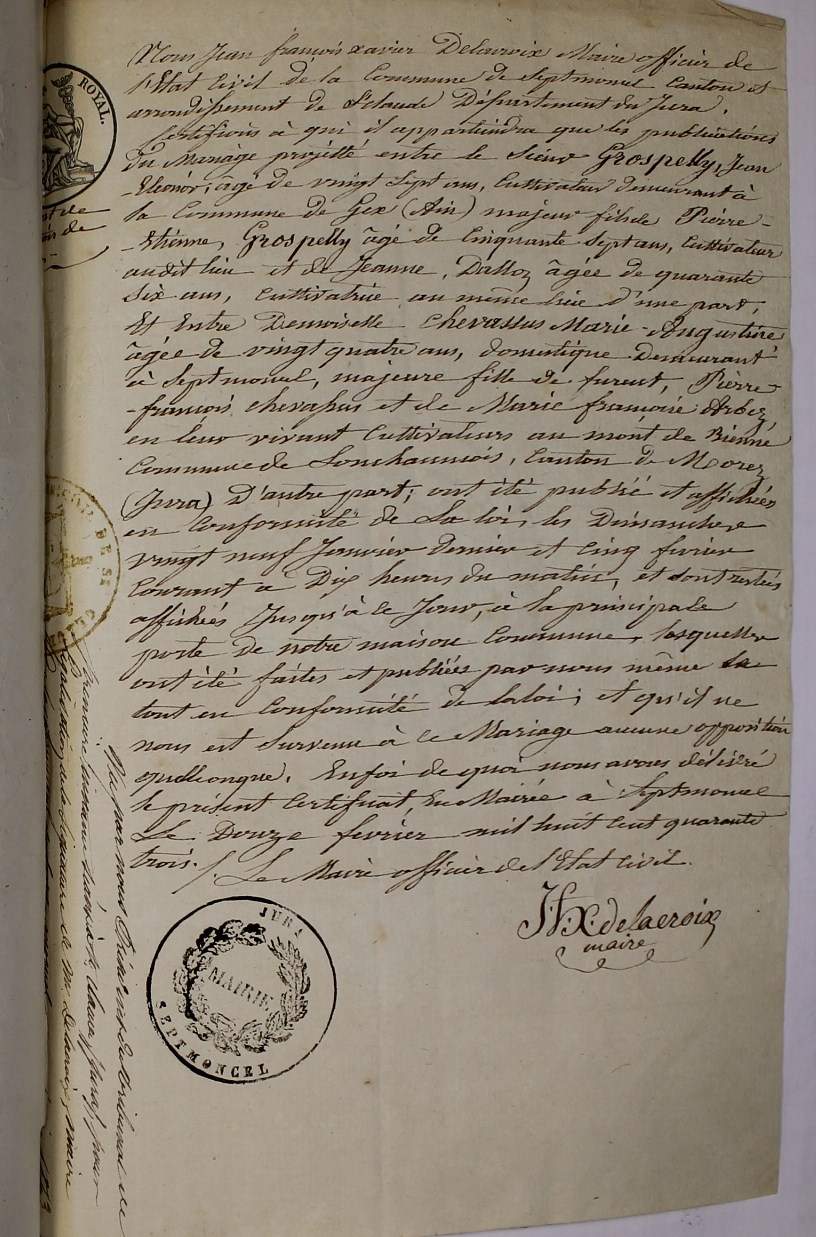 Nous Jean françois xavier Delacroix Maire officier de
l'Etat Civil de la Commune de Septmoncel Canton et
arrondissement de St Claude Département du Jura.
Certifions à qui il appartiendra que les publications
du Mariage projetté entre le Sieur Grospelly, Jean
-Eléonor, âgé de vingt sept ans, Cultivateur demeurant à
la Commune de Gex (Ain) majeur fils de Pierre-
-Etienne, Grospelly âgé de Cinquante Sept ans, Cultivateur
audit lieu et de Jeanne, Dalloz âgée de quarante
Six ans, Cultivatrice au même lieu d'une part,
Et Entre Demoiselle Chevassus Marie-Augustine
âgée de vingt quatre ans, domestique Demeurant
à Septmoncel, majeure fille de furent, Pierre-
-françois chevassus et de Marie françoise Arbez,
en leur vivant Cultivateurs au mont de Bienne
Commune de Lonchaumois, Canton de Morez
(Jura) D'autre part; ont été publié et affichées
en Conformité de La loi, les Dimanche
vingt neuf Janvier dernier et Cinq fevrier
Courant à Dix heures du matin, et sont restées
affichées Jusqu'à ce Jour, à la principale
porte de notre maison Commune, lesquelles
ont été faites et publiées par nous même le
tout en Conformité de la loi; et qu'il ne
nous est Survenu à ce Mariage aucune opposition
quelconque. Enfoi de quoi nous avons délivré
le présent Certificat, En Mairie à Septmoncel
Le Douze fevrier mil huit cent quarante
trois. /. Le Maire officier de l'Etat Civil.
J. f. X. delacroix
maire
ROYAL.
JURA
MAIRIE
SEPTMONCEL
Vu par nous Président du tribunal de
première instance séant à St Claude (Jura) pour
légalisation de la Signature de M. Delacroix maire